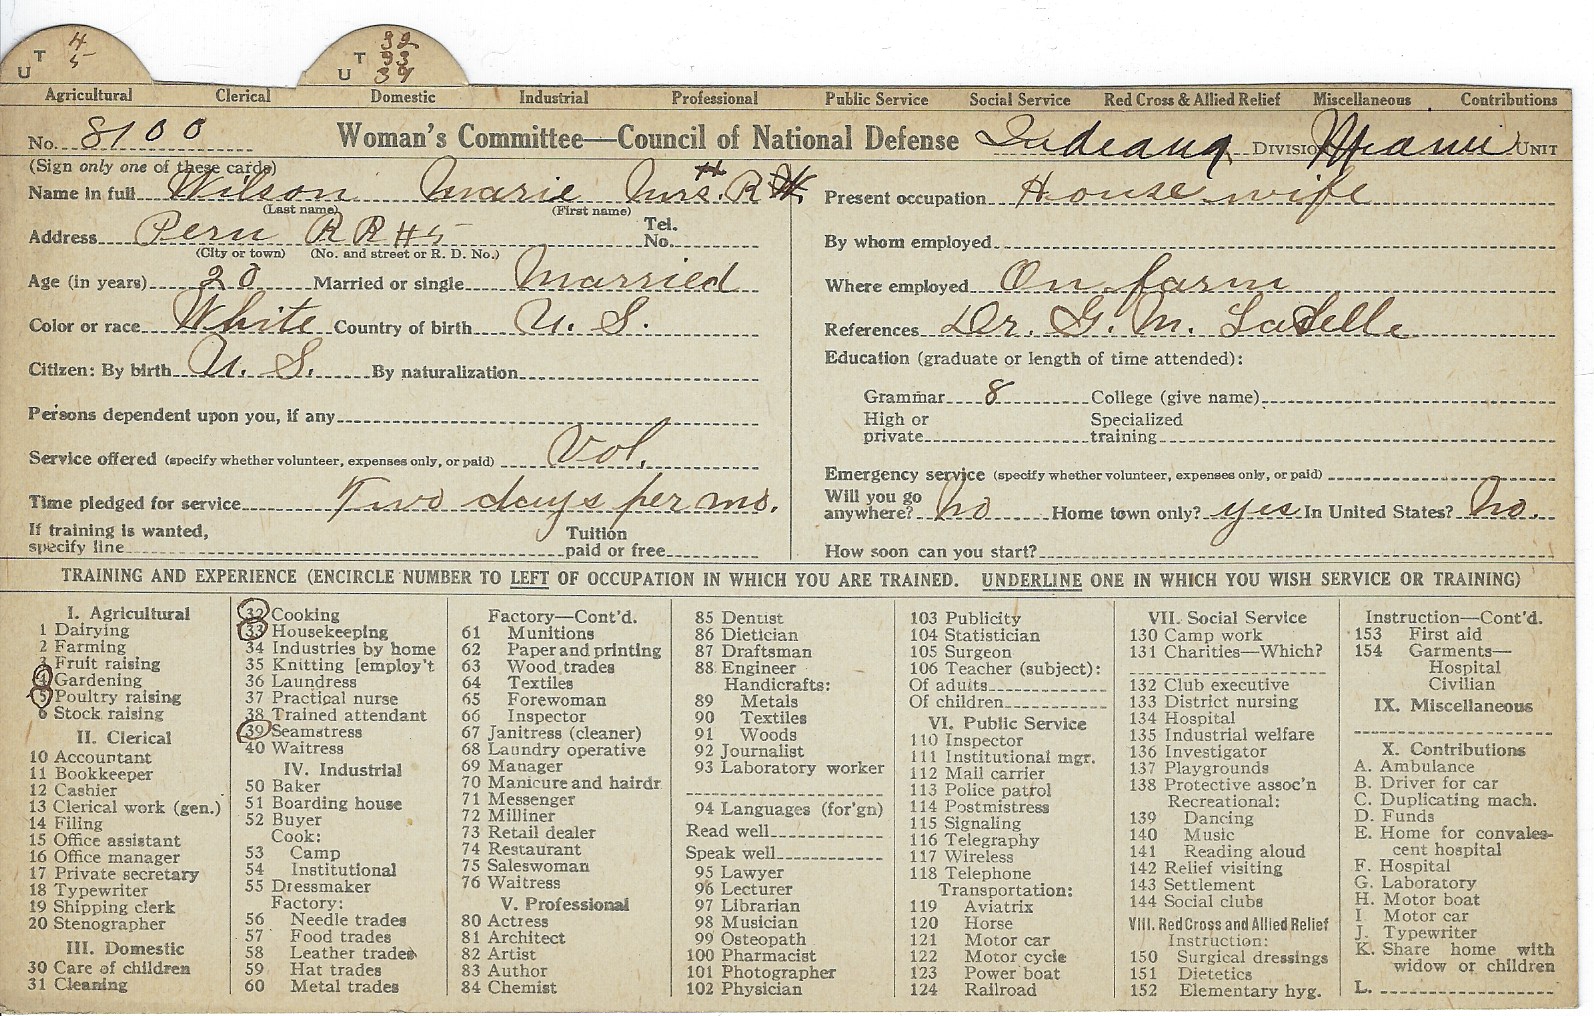 T 4
U 5
T 32
33
U 39
Agricultural Clerical Domestic Industrial Professional Public Service Social Service Red Cross & Allied Relief Miscellaneous Contributions
No. 8100 Woman's Committee—Council of National Defense Indiana Division Miami Unit
(Sign only one of these cards)
Name in full Wilson Marie Mrs. R H
(Last name) (First name)
Address Peru R R #5 Tel. No.
(City or town) (No. and street or R. D. No.)
Age (in years) 20 Married or single Married
Color or race White Country of birth U. S.
Citizen: By birth U. S. By naturalization
Persons dependent upon you, if any
Service offered (specify whether volunteer, expenses only, or paid) Vol.
Time pledged for service Two days per mo.
If training is wanted, specify line Tuition paid or free
Present occupation House wife
By whom employed
Where employed On farm
References Dr. G. M. LaSelle
Education (graduate or length of time attended):
Grammar 8 College (give name)
High or private Specialized training
Emergency service (specify whether volunteer, expenses only, or paid)
Will you go anywhere? no Home town only? yes In United States? No.
How soon can you start?
TRAINING AND EXPERIENCE (ENCIRCLE NUMBER TO LEFT OF OCCUPATION IN WHICH YOU ARE TRAINED. UNDERLINE ONE IN WHICH YOU WISH SERVICE OR TRAINING)
I. Agricultural
1 Dairying
2 Farming
3 Fruit raising
4 Gardening
5 Poultry raising
6 Stock raising
II. Clerical
10 Accountant
11 Bookkeeper
12 Cashier
13 Clerical work (gen.)
14 Filing
15 Office assistant
16 Office manager
17 Private secretary
18 Typewriter
19 Shipping clerk
20 Stenographer
III. Domestic
30 Care of children
31 Cleaning
32 Cooking
33 Housekeeping
34 Industries by home
35 Knitting [employ't
36 Laundress
37 Practical nurse
38 Trained attendant
39 Seamstress
40 Waitress
IV. Industrial
50 Baker
51 Boarding house
52 Buyer
Cook:
53 Camp
54 Institutional
55 Dressmaker
Factory:
56 Needle trades
57 Food trades
58 Leather trades
59 Hat trades
60 Metal trades
Factory—Cont'd.
61 Munitions
62 Paper and printing
63 Wood trades
64 Textiles
65 Forewoman
66 Inspector
67 Janitress (cleaner)
68 Laundry operative
69 Manager
70 Manicure and hairdr
71 Messenger
72 Milliner
73 Retail dealer
74 Restaurant
75 Saleswoman
76 Waitress
V. Professional
80 Actress
81 Architect
82 Artist
83 Author
84 Chemist
85 Dentist
86 Dietician
87 Draftsman
88 Engineer
Handicrafts:
89 Metals
90 Textiles
91 Woods
92 Journalist
93 Laboratory worker
94 Languages (for'gn)
Read well
Speak well
95 Lawyer
96 Lecturer
97 Librarian
98 Musician
99 Osteopath
100 Pharmacist
101 Photographer
102 Physician
103 Publicity
104 Statistician
105 Surgeon
106 Teacher (subject):
Of adults
Of children
VI. Public Service
110 Inspector
111 Institutional mgr.
112 Mail carrier
113 Police patrol
114 Postmistress
115 Signaling
116 Telegraphy
117 Wireless
118 Telephone
Transportation:
119 Aviatrix
120 Horse
121 Motor car
122 Motor cycle
123 Power boat
124 Railroad
VII. Social Service
130 Camp work
131 Charities—Which?
132 Club executive
133 District nursing
134 Hospital
135 Industrial welfare
136 Investigator
137 Playgrounds
138 Protective assoc'n
Recreational:
139 Dancing
140 Music
141 Reading aloud
142 Relief visiting
143 Settlement
144 Social clubs
VIII. Red Cross and Allied Relief
Instruction:
150 Surgical dressings
151 Dietetics
152 Elementary hyg.
Instruction—Cont'd.
153 First aid
154 Garments—
Hospital
Civilian
IX. Miscellaneous
X. Contributions
A. Ambulance
B. Driver for car
C. Duplicating mach.
D. Funds
E. Home for convales-
cent hospital
F. Hospital
G. Laboratory
H. Motor boat
I Motor car
J. Typewriter
K. Share home with
widow or children
L.